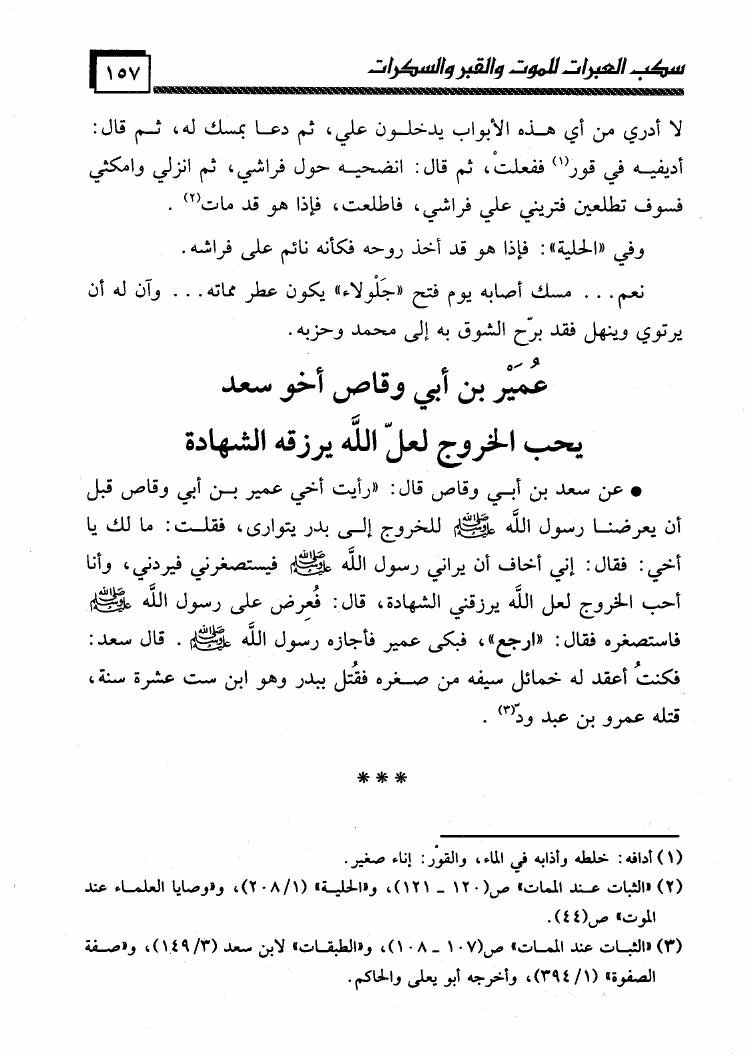 سكب العبرات للموت والقبر والسكرات
١٥٧
لا أدري من أي هذه الأبواب يدخلون علي، ثم دعا بمسك له، ثم قال:
أديفيه في قور(١) ففعلتْ، ثم قال: انضحيه حول فراشي، ثم انزلي وامكثي
فسوف تطلعين فتريني علي فراشي، فاطلعت، فإذا هو قد مات(٢) .
وفي «الحلية»: فإذا هو قد أخذ روحه فكأنه نائم على فراشه.
نعم... مسك أصابه يوم فتح «جَلْولاء» يكون عطر مماته... وآن له أن
يرتوي وينهل فقد برّح الشوق به إلى محمد وحزبه.
عُمَيْر بن أبي وقاص أخو سعد
يحب الخروج لعلّ اللَّه يرزقه الشهادة
● عن سعد بن أبي وقاص قال: «رأيت أخي عمير بن أبي وقاص قبل
أن يعرضنا رسول اللَّه ﷺ للخروج إلى بدر يتوارى، فقلت: ما لك يا
أخي: فقال: إني أخاف أن يراني رسول اللَّه ﷺ فيستصغرني فيردني، وأنا
أحب الخروج لعل اللَّه يرزقني الشهادة، قال: فُعرِض على رسول اللَّه ﷺ
فاستصغره فقال: «ارجع»، فبكى عمير فأجازه رسول اللَّه ﷺ . قال سعد:
فكنتُ أعقد له حمائل سيفه من صغره فقُتل ببدر وهو ابن ست عشرة سنة،
قتله عمرو بن عبد ودّ(٣) .
***
(١) أدافه: خلطه وأذابه في الماء، والقوْر: إناء صغير.
(٢) «الثبات عند الممات» ص(١٢٠ ـ ١٢١)، و«الحلية» (٢٠٨/١)، و«وصايا العلماء عند
الموت» ص(٤٤).
(٣) «الثبات عند الممات» ص(١٠٧ ـ ١٠٨)، و«الطبقات» لابن سعد (١٤٩/٣)، و«صفة
الصفوة» (٣٩٤/١)، وأخرجه أبو يعلى والحاكم.